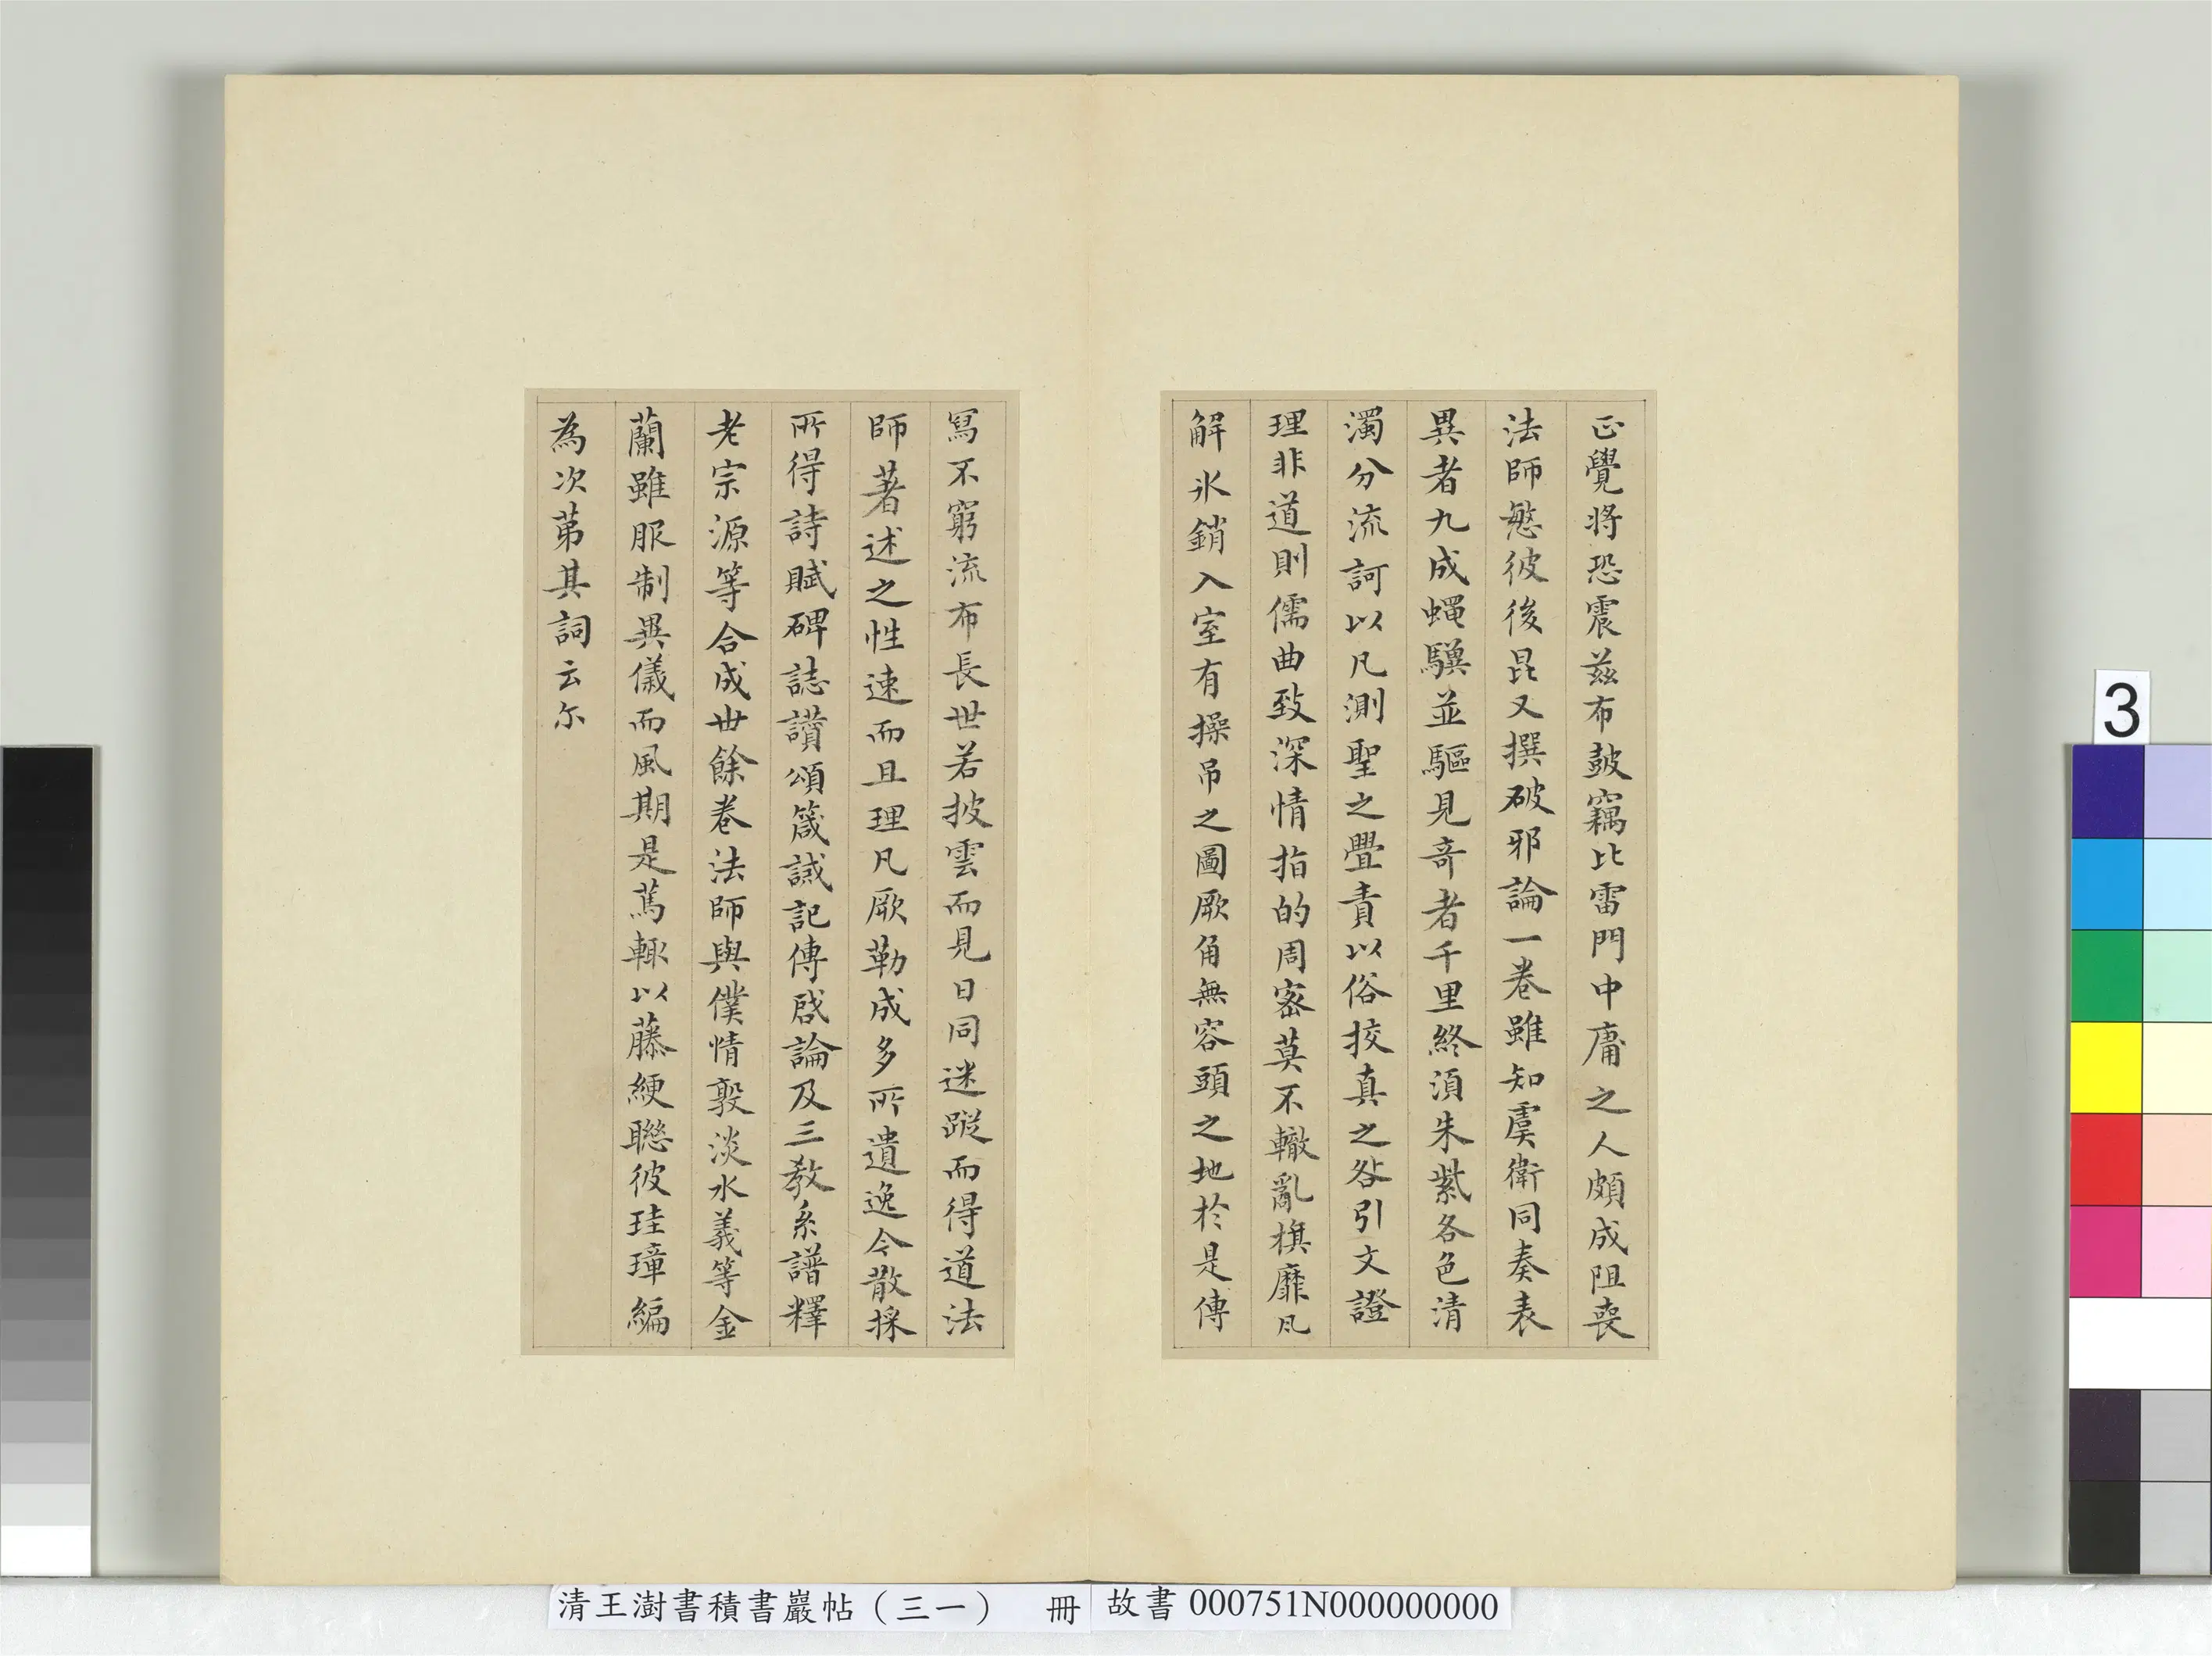 正覺將恐震茲布鼓竊比雷門中庸之人頗成阻喪
法師愍彼後昆又撰破邪論一卷雖知虞衛同奏表
異者九成蠅驥並驅見奇者千里終須朱紫各色清
濁分流訶以凡測聖之疊責以俗挍真之咎引文證
理非道則儒曲致深情指的周密莫不轍亂旗靡瓦
解氷銷入室有操吊之圖厥角無容頭之地於是傳
寫不窮流布長世若披雲而見日同迷蹤而得道法
師著述之性速而且理凡厥勒成多所遺逸令散採
所得詩賦碑誌讚頌箴誡記傳啟論及三教系譜釋
老宗源等合成卅餘卷法師與僕情敦淡水義等金
蘭雖服制異儀而風期是篤輒以藤綆聮彼珪璋編
為次第其詞云尔
清王澍書積書巖帖（三一） 冊 故書000751N000000000
3